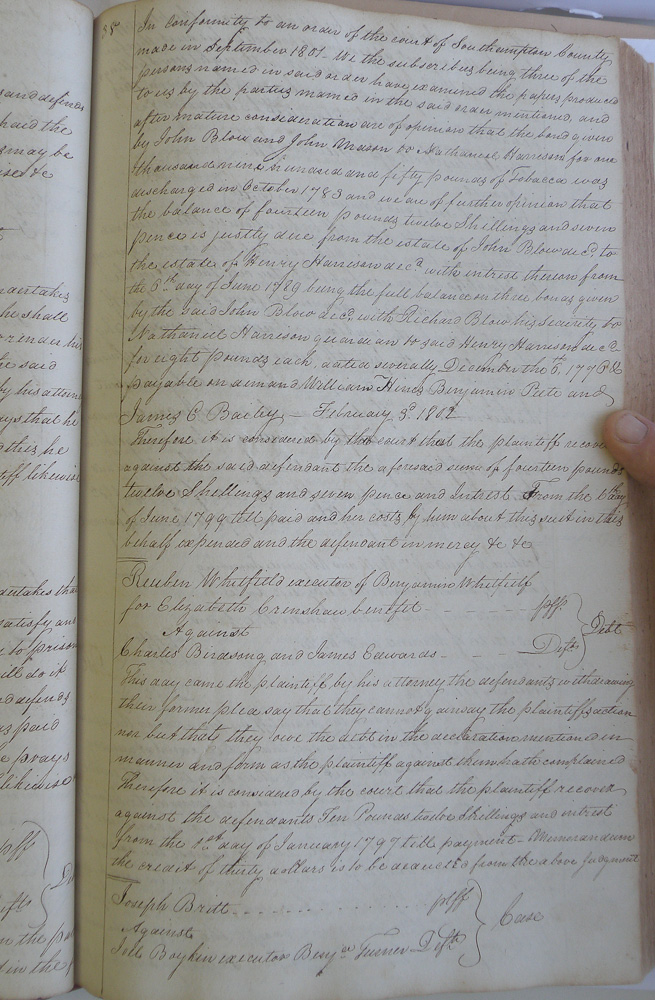 and defends
paid the
may be
In conformity to an order of the court of Southampton County
made in September 1801. We the subscribers being three of the
persons named in said order have examined the papers produced
to us by the parties named in the said order mentioned, and
after mature consideration are of opinion that the bond given
by John Blow and John Mason to Nathaniel Harrison for one
thousand nine hundred and fifty pounds of Tobacco was
discharged in October 1783 and we are of further opinion that
the balance of fourteen pounds twelve Shillings and seven
pence is justly due from the estate of John Blow decd. to
the estate of Henry Harrison decd. with intrest thereon from
the 6th day of June 1789 being the full balance on three bonds given
by the said John Blow decd. with Richard Blow his security to
Nathaniel Harrison guardian to said Henry Harrison decd.
for eight pounds each, dated severally December the 6th, 1776 &
payable on demand William Hines Benjamin Pete and
James C Bailey — February 3d 1802
Therefore it is considered by the court that the plaintiff recover
against the said defendant the aforesaid sum of fourteen pounds
twelve Shillings and seven pence and Intrest From the 6 day
of June 1799 till paid and her costs by him about this suit in this
behalf expended and the defendant in mercy &c &c
Reuben Whitfield executor of Benjamin Whitfield
for Elizabeth Crenshaw benefit - - - - - plff
Against } Debt
Charles Birdsong and James Edwards - - - - Defts
This day came the plaintiff by his attorney the defendants withdrawing
their former plea say that they cannot gainsay the plaintiffs action
nor but that they owe the debt in the declaration mentioned in
manner and form as the plaintiff against them hath complained
Therefore it is considered by the court that the plaintiff recover
against the defendants Ten Pounds twelve Shillings and intrest
from the 1st day of January 1797 till payment - Memorandum
the credit of thirty dollars is to be deducted from the above Judgment
Joseph Britt - - - - - - - - plff
Against } Case
Boykin executor Benjn Turner - Deft